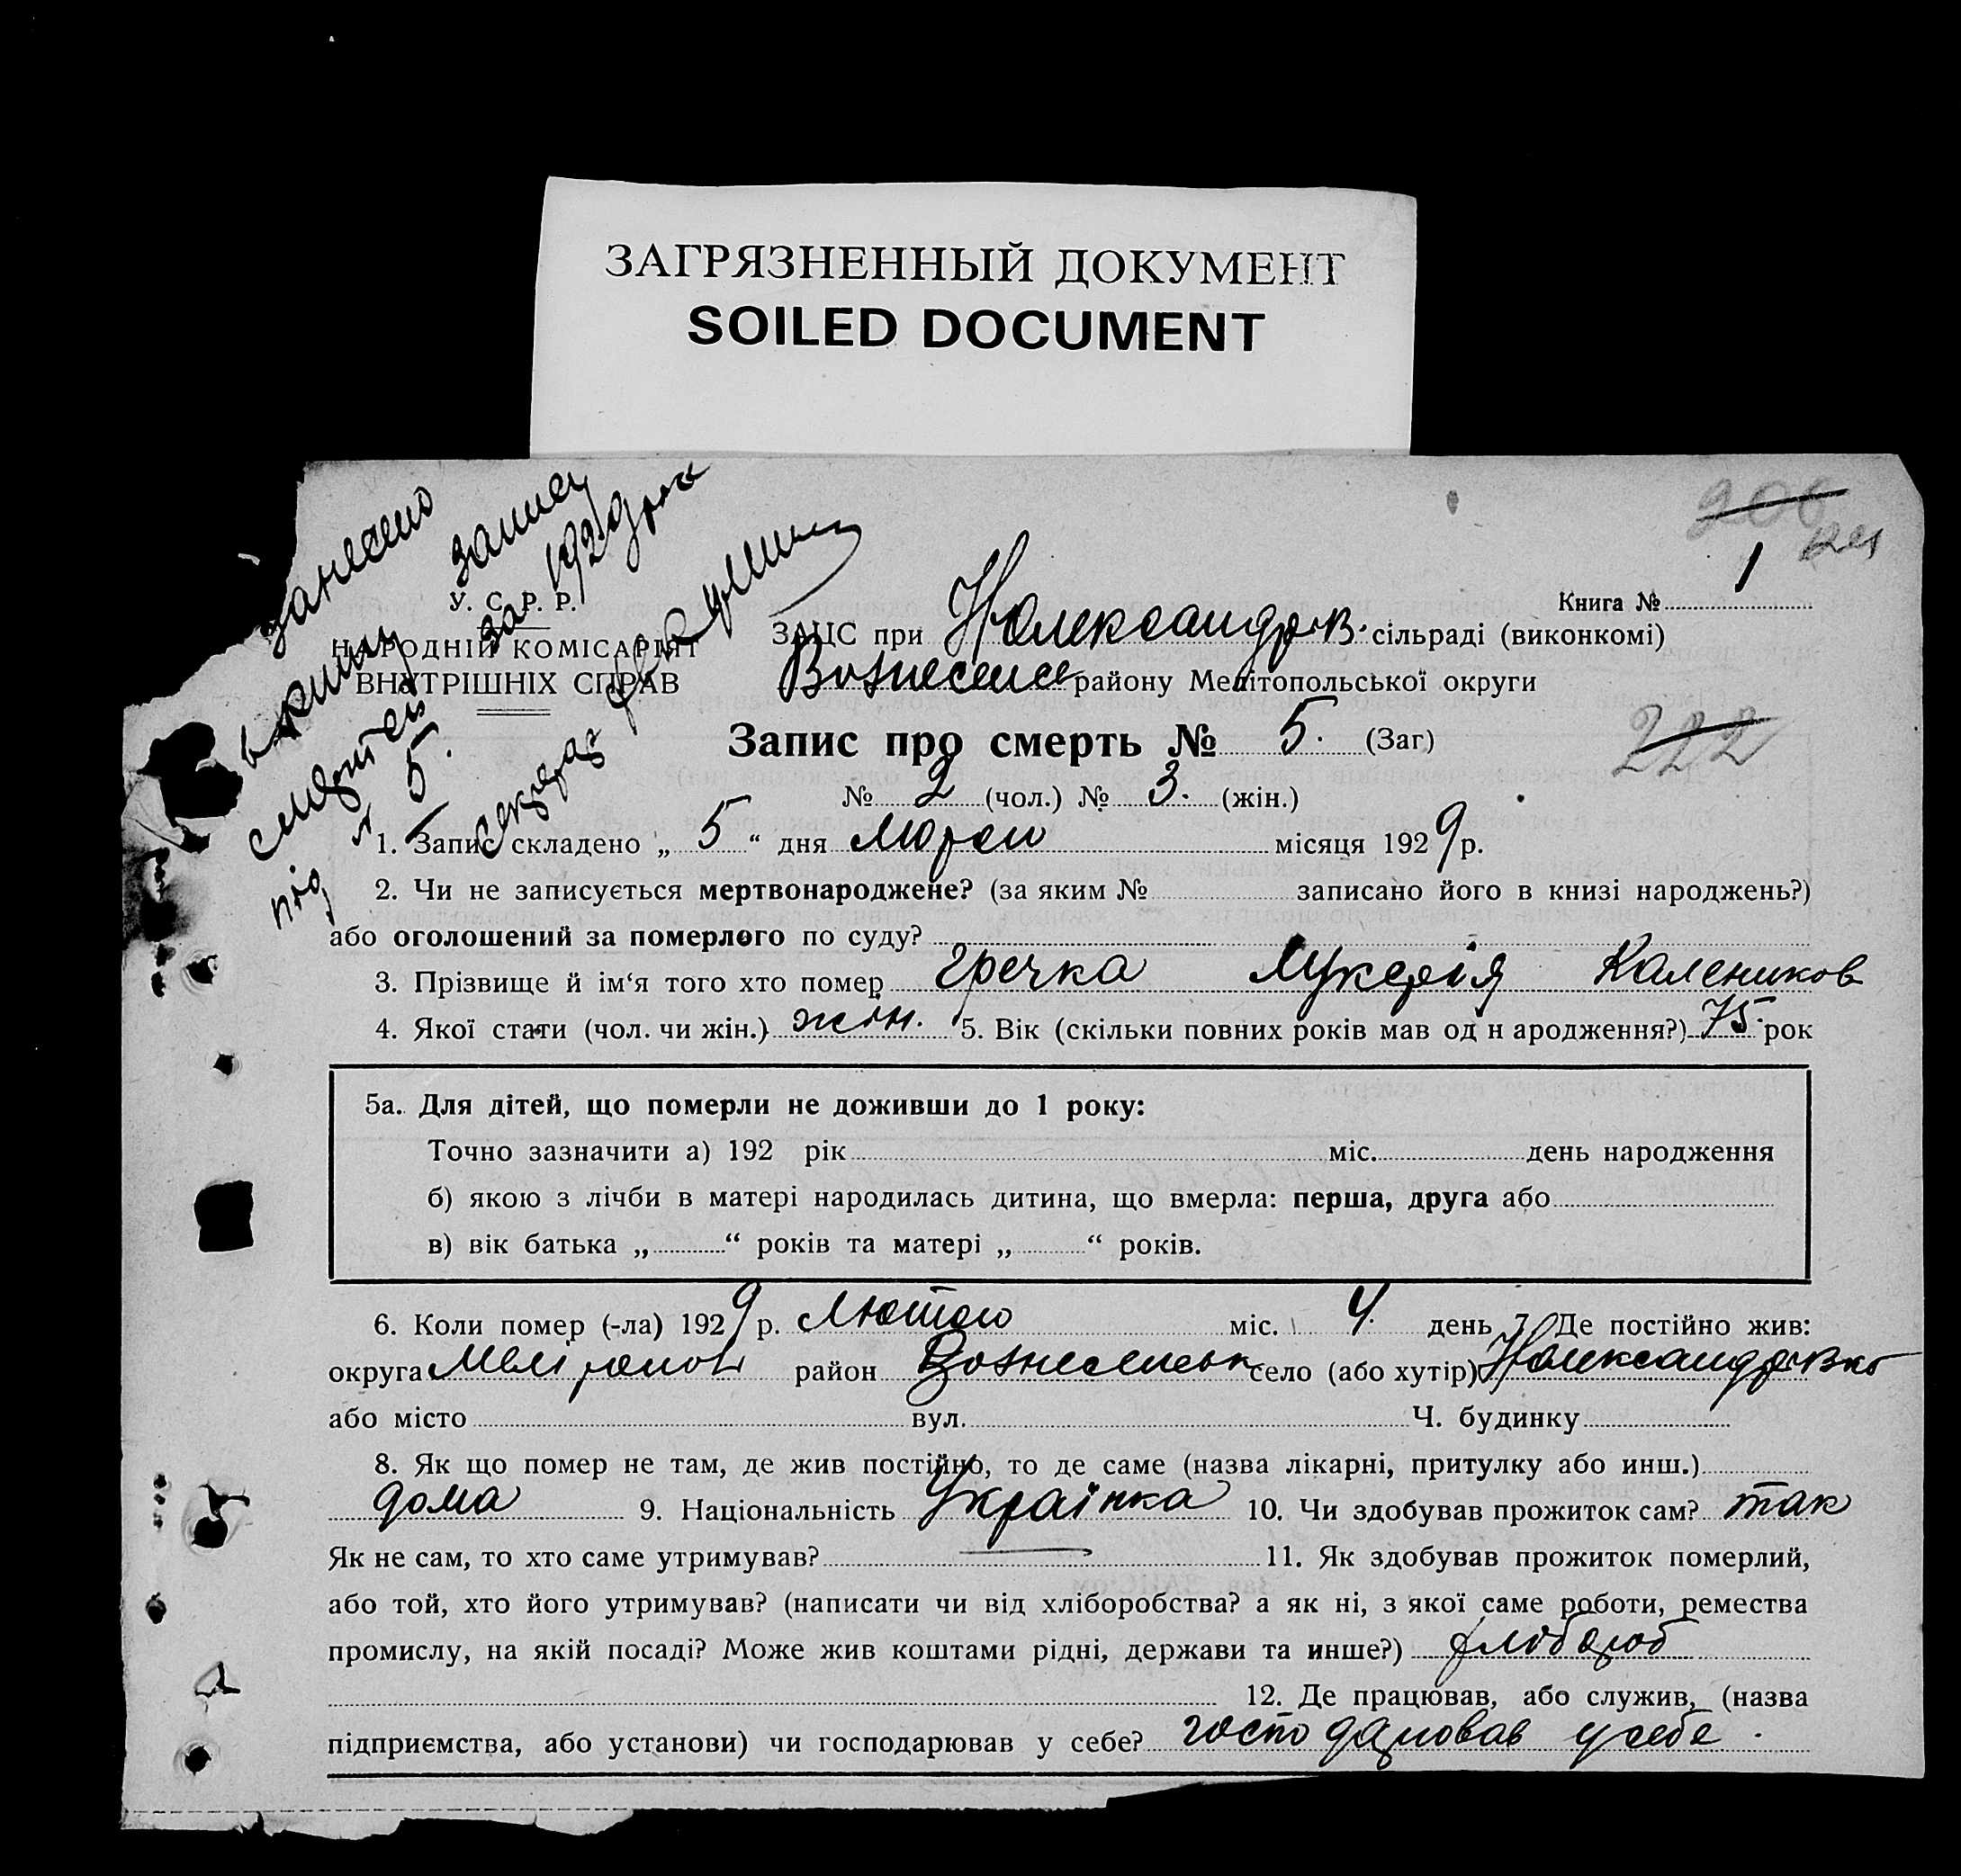 ЗАГРЯЗНЕННЫЙ ДОКУМЕНТ
SOILED DOCUMENT
занесено
в книгу запису
смертей за 1929 рік
під № 5.
секретар
206
У. С. Р. Р.
НАРОДНІЙ КОМІСАРІЯТ
ВНУТРІШНІХ СПРАВ
Книга № 1
ЗАЦС при Нолександрів. сільраді (виконкомі)
Вознесенсь району Мелітопольської округи
222
Запис про смерть № 5. (Заг)
№ 2 (чол.) № 3. (жін.)
1. Запис складено „ 5 “ дня місяця 1929 р.
2. Чи не записується мертвонароджене? (за яким № записано його в книзі народжень?)
або оголошений за померлого по суду?
3. Прізвище й ім‘я того хто помер Гречка Лукерія Калеников
4. Якої стати (чол. чи жін.) жін. 5. Вік (скільки повних років мав од н ародження?) 75. рок
5а. Для дітей, що померли не доживши до 1 року:
Точно зазначити а) 192 рік міс. день народження
б) якою з лічби в матері народилась дитина, що вмерла: перша, друга або
в) вік батька „ “ років та матері „ “ років.
6. Коли помер (-ла) 1929 р. Лютого міс. 4. день 7. Де постійно жив:
округа Мелітопол район Вознесенськ село (або хутір) Нолександрівка
або місто вул. Ч. будинку
8. Як що помер не там, де жив постійно, то де саме (назва лікарні, притулку або инш.)
дома 9. Національність Українка 10. Чи здобував прожиток сам? так
Як не сам, то хто саме утримував? 11. Як здобував прожиток померлий,
або той, хто його утримував? (написати чи від хліборобства? а як ні, з якої саме роботи, ремества
промислу, на якій посаді? Може жив коштами рідні, держави та инше?) хлібороб
12. Де працював, або служив, (назва
підприємства, або установи) чи господарював у себе? господарював у себе.